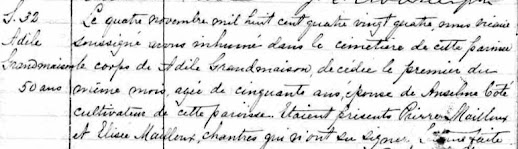 S. 32
Adile
Grandmaison
50 ans
Le quatre novembre mil huit cent quatre vingt quatre, nous vicaire
soussigné avons inhumé dans le cimetière de cette paroisse
le corps de Adile Grandmaison, décédée le premier du
même mois, agée de cinquante ans, épouse de Anselme Coté
cultivateur de cette paroisse. Etaient présents Pierre Mailloux
et Elisée Mailloux, chantres qui n'ont su signer. faite